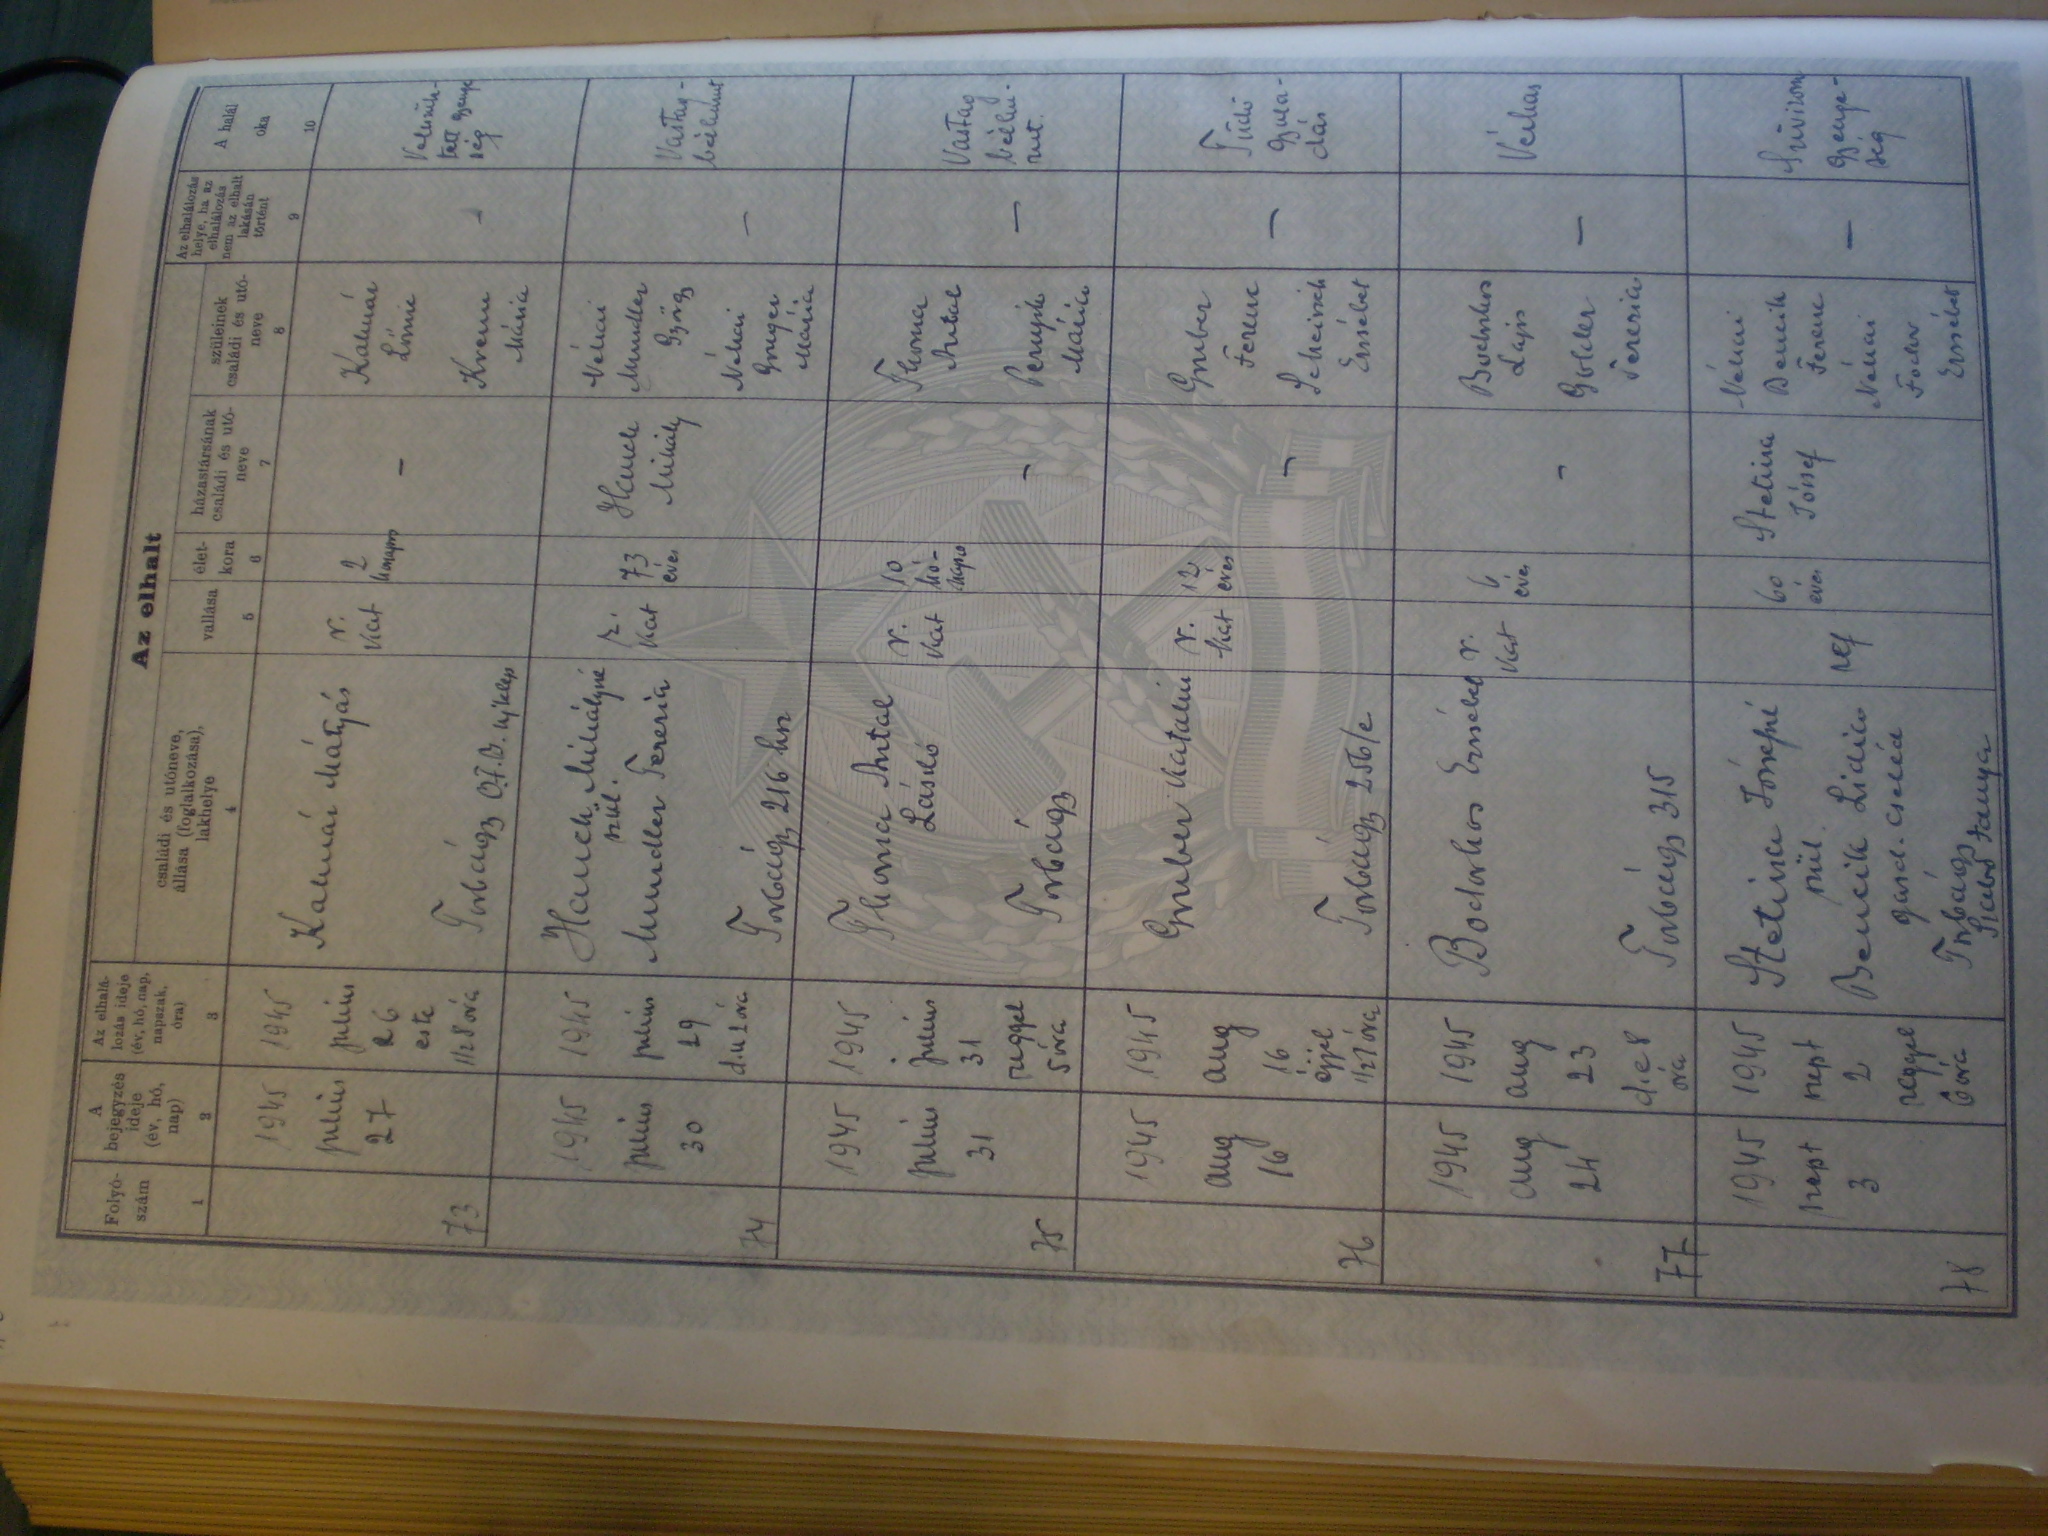 Az elhalt
Folyó-
szám
A
bejegyzés
ideje
(év, hó,
nap)
Az elhalá-
lozás ideje
(év, hó, nap,
napszak,
óra)
családi és utóneve,
állása (foglalkozása),
lakhelye
vallása
élet-
kora
házastársának
családi és utó-
neve
szüleinek
családi és utó-
neve
Az elhalálozás
helye, ha az
elhalálozás
nem az elhalt
lakásán
történt
A halál
oka
1
2
3
4
5
6
7
8
9
10
73
1945
julius
27
1945
julius
26
este
1/2 8 óra
Kalmár Mátyás
Torbágy O.F.B. ujtelep
r.
kat
2
hónapos
—
Kalmár
Mária
—
ség
74
1945
julius
30
1945
julius
29
d.u 2 óra
Hauck Mihályné
szül.
Mundler Terézia
Torbágy 216 hsz
r.
kat
73
éves
Hauck
Mihály
Néhai
Mundler
György
Néhai
Mária
—
Vastag-
bélhurut
75
1945
julius
31
1945
julius
31
reggel
5 óra
Thoma Antal
László
Torbágy
r.
kat
10
hó-
napos
—
Thoma
Antal
Mária
—
Vastag
bélhu-
rut.
76
1945
aug
16
1945
aug
16
éjjel
1/2 1 óra
Gruber Katalin
Torbágy 256/c
r.
kat
12
éves
—
Gruber
Ferenc
Erzsébet
—
Tüdő
gyula-
dás
77
1945
aug
24
1945
aug
23
d.e 8
óra
Erzsébet
Torbágy 315
r.
kat
6
éves
—
Lajos
Terézia
—
Vérhas
78
1945
szept
3
1945
szept
2
reggel
6 óra
Stetina Józsefné
szül.
Bencik Lidia
gazd. cseléd
Torbágy
tanya
ref
60
éves
Stetina
József
Néhai
Bencik
Ferenc
Néhai
Fodor
Erzsébet
—
Szívizom
gyenge-
ség